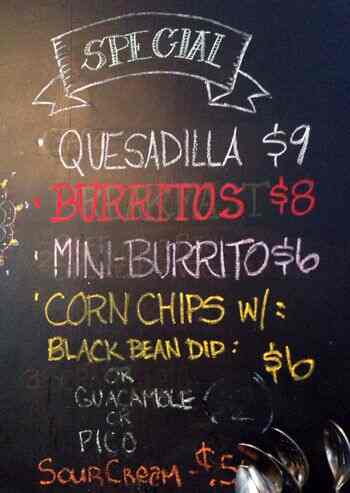 SPECIAL
· QUESADILLA $9
· BURRITOS $8
· MINI-BURRITO $6
· CORN CHIPS W/:
BLACK BEAN DIP: $6
OR
GUACAMOLE
OR
PICO
SOUR CREAM - $.5